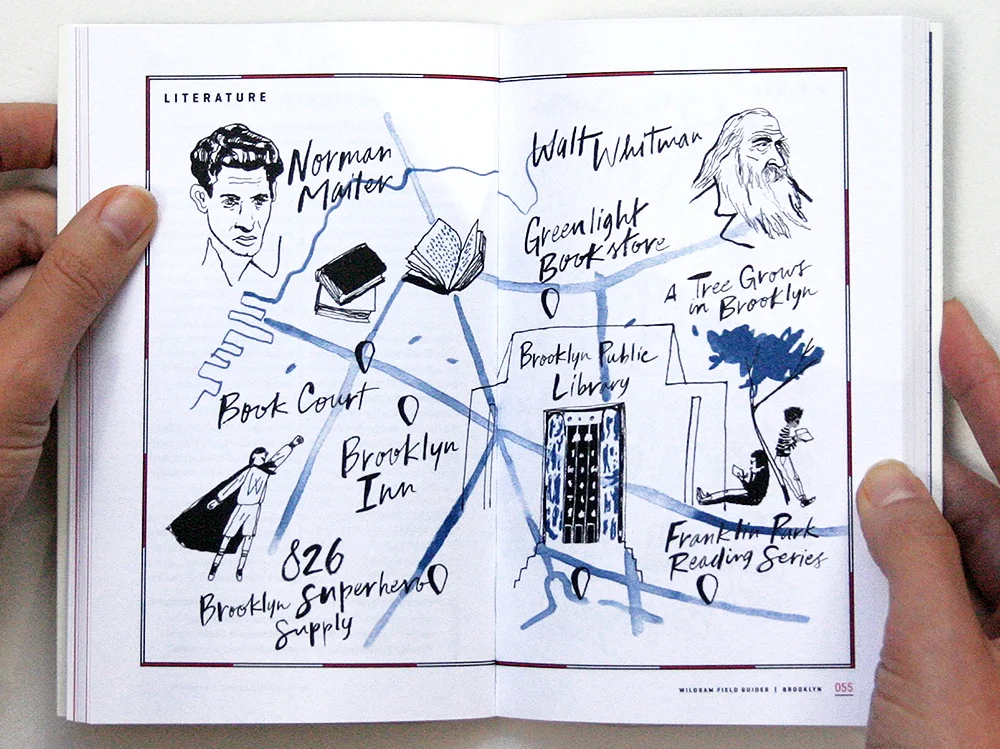 LITERATURE
Norman
Mailer
Walt Whitman
Greenlight
Bookstore
A Tree Grows
in Brooklyn
Brooklyn Public
Library
Book Court
Brooklyn
Inn
826
Brooklyn Superhero
Supply
Franklin Park
Reading Series
WILDSAM FIELD GUIDES | BROOKLYN 055